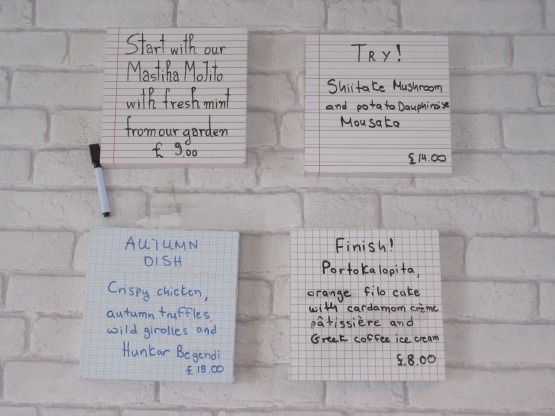 Start with our
Mastiha Mojito
with fresh mint
from our garden
£ 9.00
TRY!
Shiitake Mushroom
and potato Dauphinoise
Mousaka
£14.00
AUTUMN
DISH
Crispy chicken,
autumn truffles,
wild girolles and
Hunkar Begendi
£18.00
Finish!
Portokalopita,
orange filo cake
with cardamom crème
pâtissière and
Greek coffee ice cream
£8.00